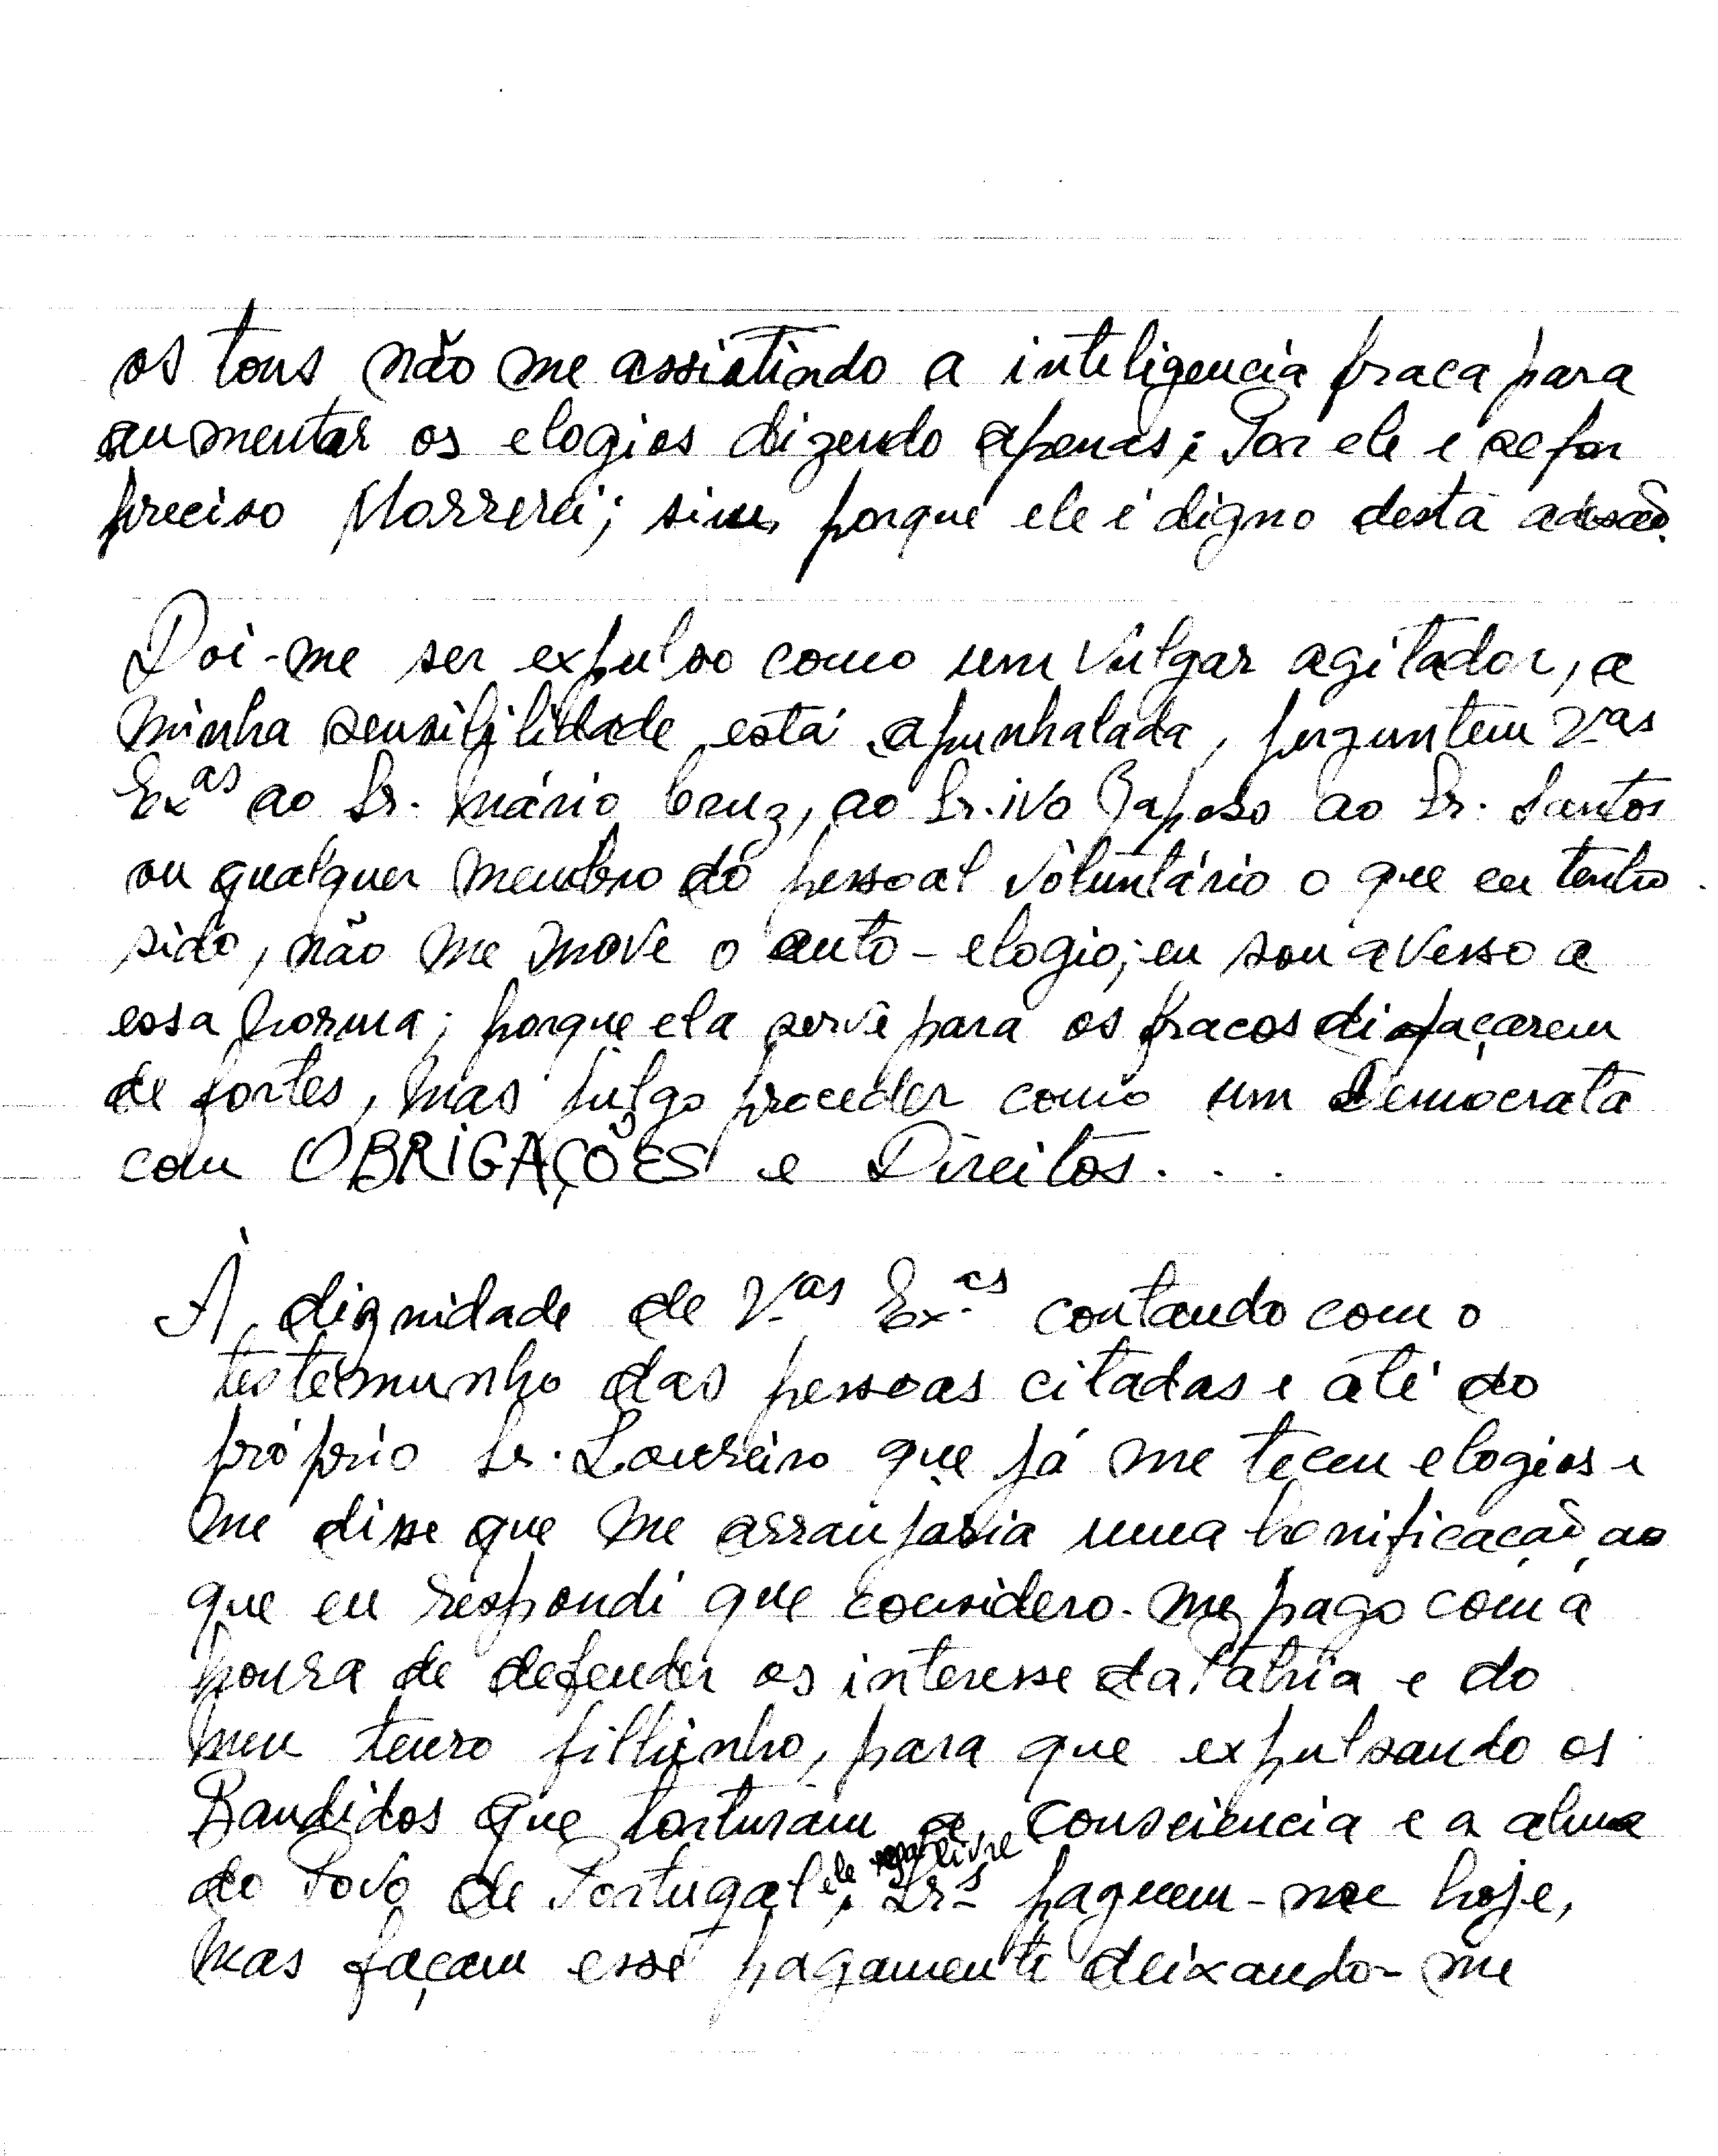 os tons não me assistindo a inteligencia fraca para
aumentar os elogios dizendo apenas; Por ele e se for
preciso Morrerei; sim, porque ele é digno desta adesão.
Doi-me ser expulso como um vulgar agitador, a
minha sensibilidade está apunhalada, perguntem V.as
Ex.as ao Sr. Mário Cruz, ao Sr. ivo Raposo ao Sr. Santos
ou qualquer membro do pessoal voluntário o que eu tenho
sido, não me move o auto-elogio; eu sou avesso a
essa forma; porque ela serve para os fracos disfaçarem
de fortes, mas julgo proceder como um Democrata
com OBRIGAÇÕES e Direitos...
À dignidade de V.as Ex.as contando com o
testemunho das pessoas citadas e até do
próprio Sr. Loureiro que já me teceu elogios e
me disse que me arranjaria uma bonificação, ao
que eu respondi que considero-me pago com a
honra de defender os interesse da Pátria e do
meu tenro filhinho, para que expulsando os
Bandidos que torturam a consciencia e a alma
ele seja livre
do Povo de Portugal, Sr.s paguem-me hoje,
mas façam esse pagamento deixando-me